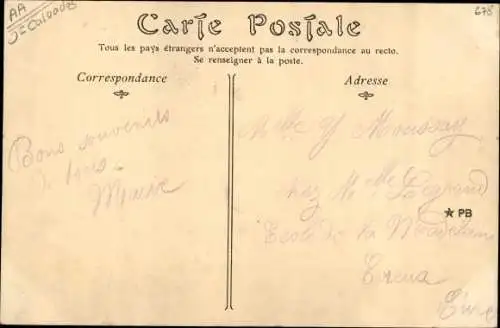 AA
J= Calvados
678
Carte Postale
Tous les pays étrangers n'acceptent pas la correspondance au recto.
Se renseigner à la poste.
Correspondance
Bons souvenirs
de tous.
Adresse
Mlle Y
chez M. Mme Legrand
★ PB
Ecole de la Madeleine
Eure